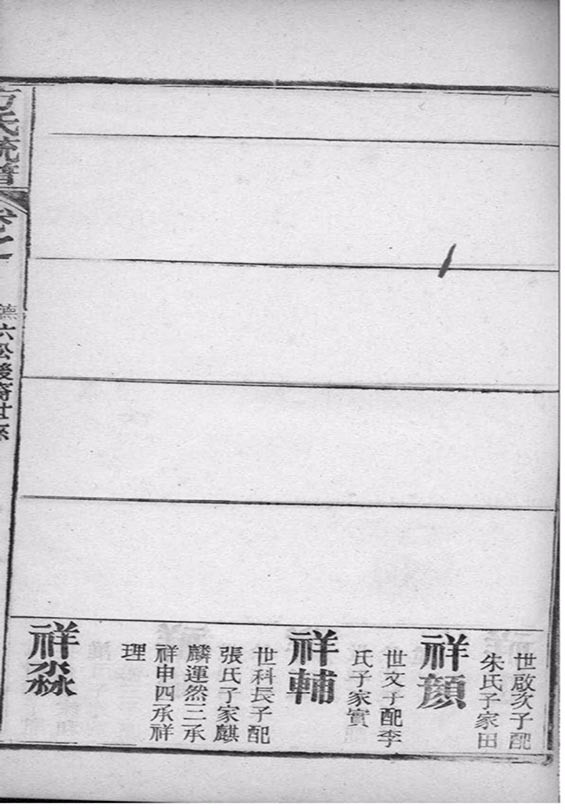 世啟次子配
朱氏子家田
祥顏
世文子配李
氏子家實
祥輔
世科長子配
張氏子家麒
麟運然三承
祥申四承祥
理
祥淼
氏統譜
卷之
六松後裔世系